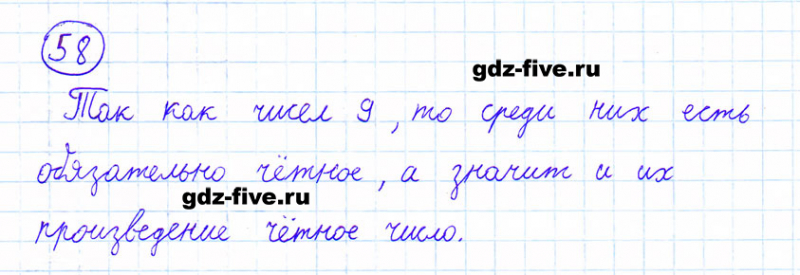 58
gdz-five.ru
Так как чисел 9, то среди них есть
обязательно чётное, а значит и их
gdz-five.ru
произведение чётное число.